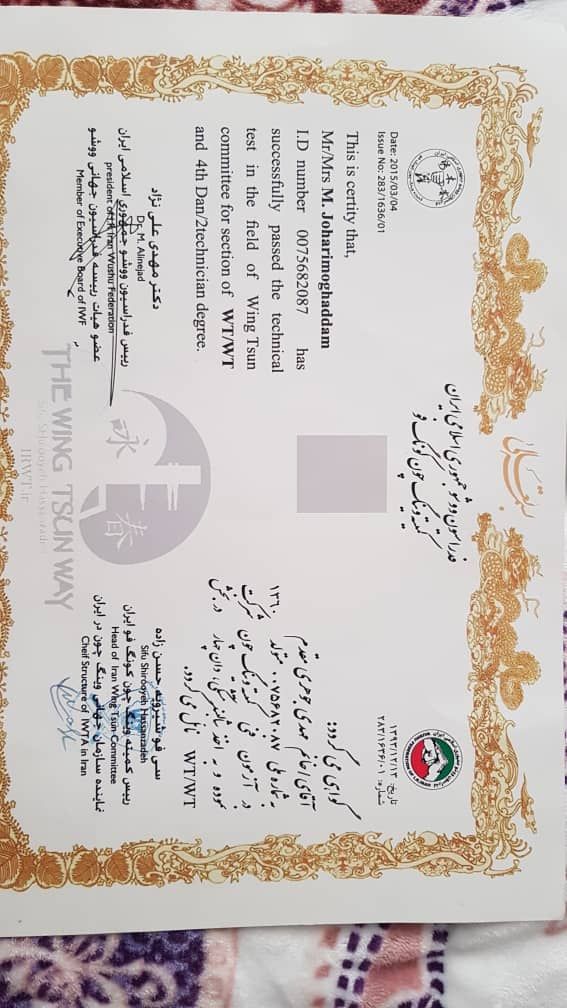 بسمه تعالی
فدراسیون ووشو جمهوری اسلامی ایران
کمیته وینگ چون کونگ فو
Date: 2015/03/04
Issue No: 283/1636/01
This is certify that,
Mr/Mrs M. Joharimoghaddam
I.D number 0075682087 has
successfully passed the technical
test in the field of Wing Tsun
committee for section of WT/WT
and 4th Dan/2technician degree.
تاریخ: ۱۳۹۳/۱۲/۱۳
شماره: ۲۸۳/۱۶۳۶/۰۱
گواهی می گردد:
آقای/خانم مهدی جوهری مقدم
به شماره ملی ۰۰۷۵۶۸۲۰۸۷ متولد ۱۳۶۰
در آزمون فنی کمیته وینگ چون شرکت
نموده و به اخذ تکنسین ۲ دان چهار در بخش
WT/WT نائل می گردد.
دکتر مهدی علی نژاد
Dr. M. Alinejad
رییس فدراسیون ووشو جمهوری اسلامی ایران
president of I.R Iran Wushu Federation
عضو هیات رییسه فدراسیون جهانی ووشو
Member of Executive Board of IWF
詠春
THE WING TSUN WAY
Sifu Shirooyeh Hassanzadeh
IRWT.ir
سی فو شیرویه حسن زاده
Sifu Shirooyeh Hassanzadeh
رییس کمیته وینگ چون کونگ فو ایران
Head of Iran Wing Tsun Committee
نماینده سازمان جهانی وینگ چون در ایران
Cheif Structure of IWTA in Iran